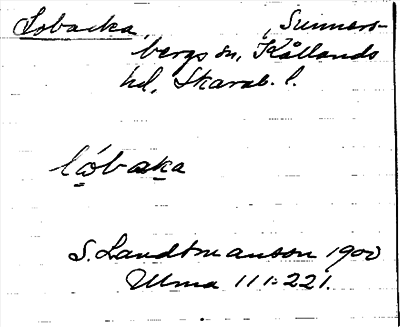 Lobacka, , Sunners-
bergs sn, Kållands
hd, Skarab. l.
lóbaka
S. Landtmanson 1900
Ulma 111:221.